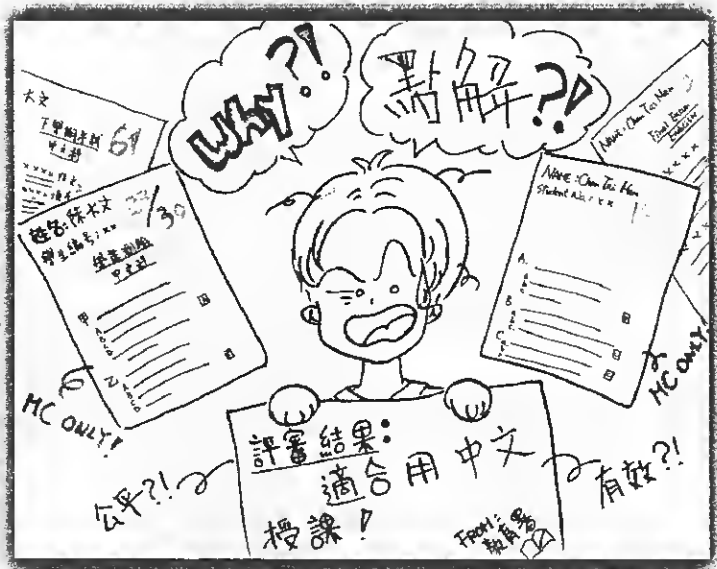 Why?!
點解?!
大文
下學期考試 61
中文科
姓名:陳大文
學生編號:xx
/30
中文科
甲
乙
MC ONLY!
Name: Chan Tai Man
Final Exam
English
xxxx
NAME: Chan Tai Man
Student No.: xx
A.
B.
C.
MC ONLY!
評審結果:
適合用中文
授課!
FROM:
公平?!
有效?!